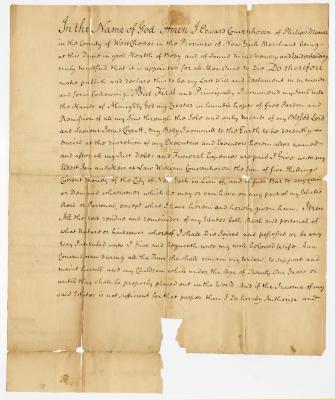 In the Name of God Amen I Edward Couwenhoven of Philips Mannor
in the County of West Chester in the Province of New York Merchant being
at this Time in good Health of Body and of Sound mind memory and understanding
truly mindfull that it is appointed for all Men Once to Die Do therefore
make publish and declare this to be my Last Will and Testament in manner
and form following But First and Principally I commend my Soul into
the Hands of Almighty God my Creator in humble hopes of free Pardon and
Remission of all my Sins through the Sole and only Merits of my Blessed Lord
and Saviour Jesus Christ, my Body I commit to the Earth to be decently
buried at the discretion of my Executrix and Executors herein after named
and after all my Just Debts and Funeral Expences are paid I Give unto my
Eldest Son and Heir at Law William Couwenhoven the Sum of five Shillings
Current money of the City of New York in Lieu of and in full Bar to any
or Demand whatsoever which he may or can have on any part of my Estate
Real or Personal except what I have herein and hereby given him, Item
All the rest residue and remainder of my Estate both Real and personal of
what nature or kind soever whereof I shall Die Seized and possessed or be any
way Intituled unto I Give and bequeath unto my well beloved Wife
Couwenhoven during all the Time she shall remain my widow, to support and
maint herself and my Children while under the Age of Twenty One Years or
until they shall be properly placed out in the World, And if the Income of my
said Estate is not sufficient for that purpose then I do hereby Authorize and